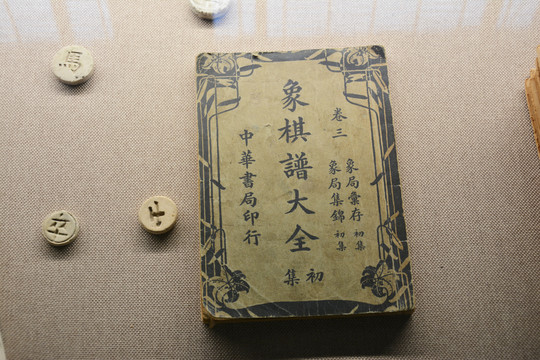 象棋譜大全
初集
卷三
象局彙存 初集
象局集錦 初集
中華書局印行
馬
士